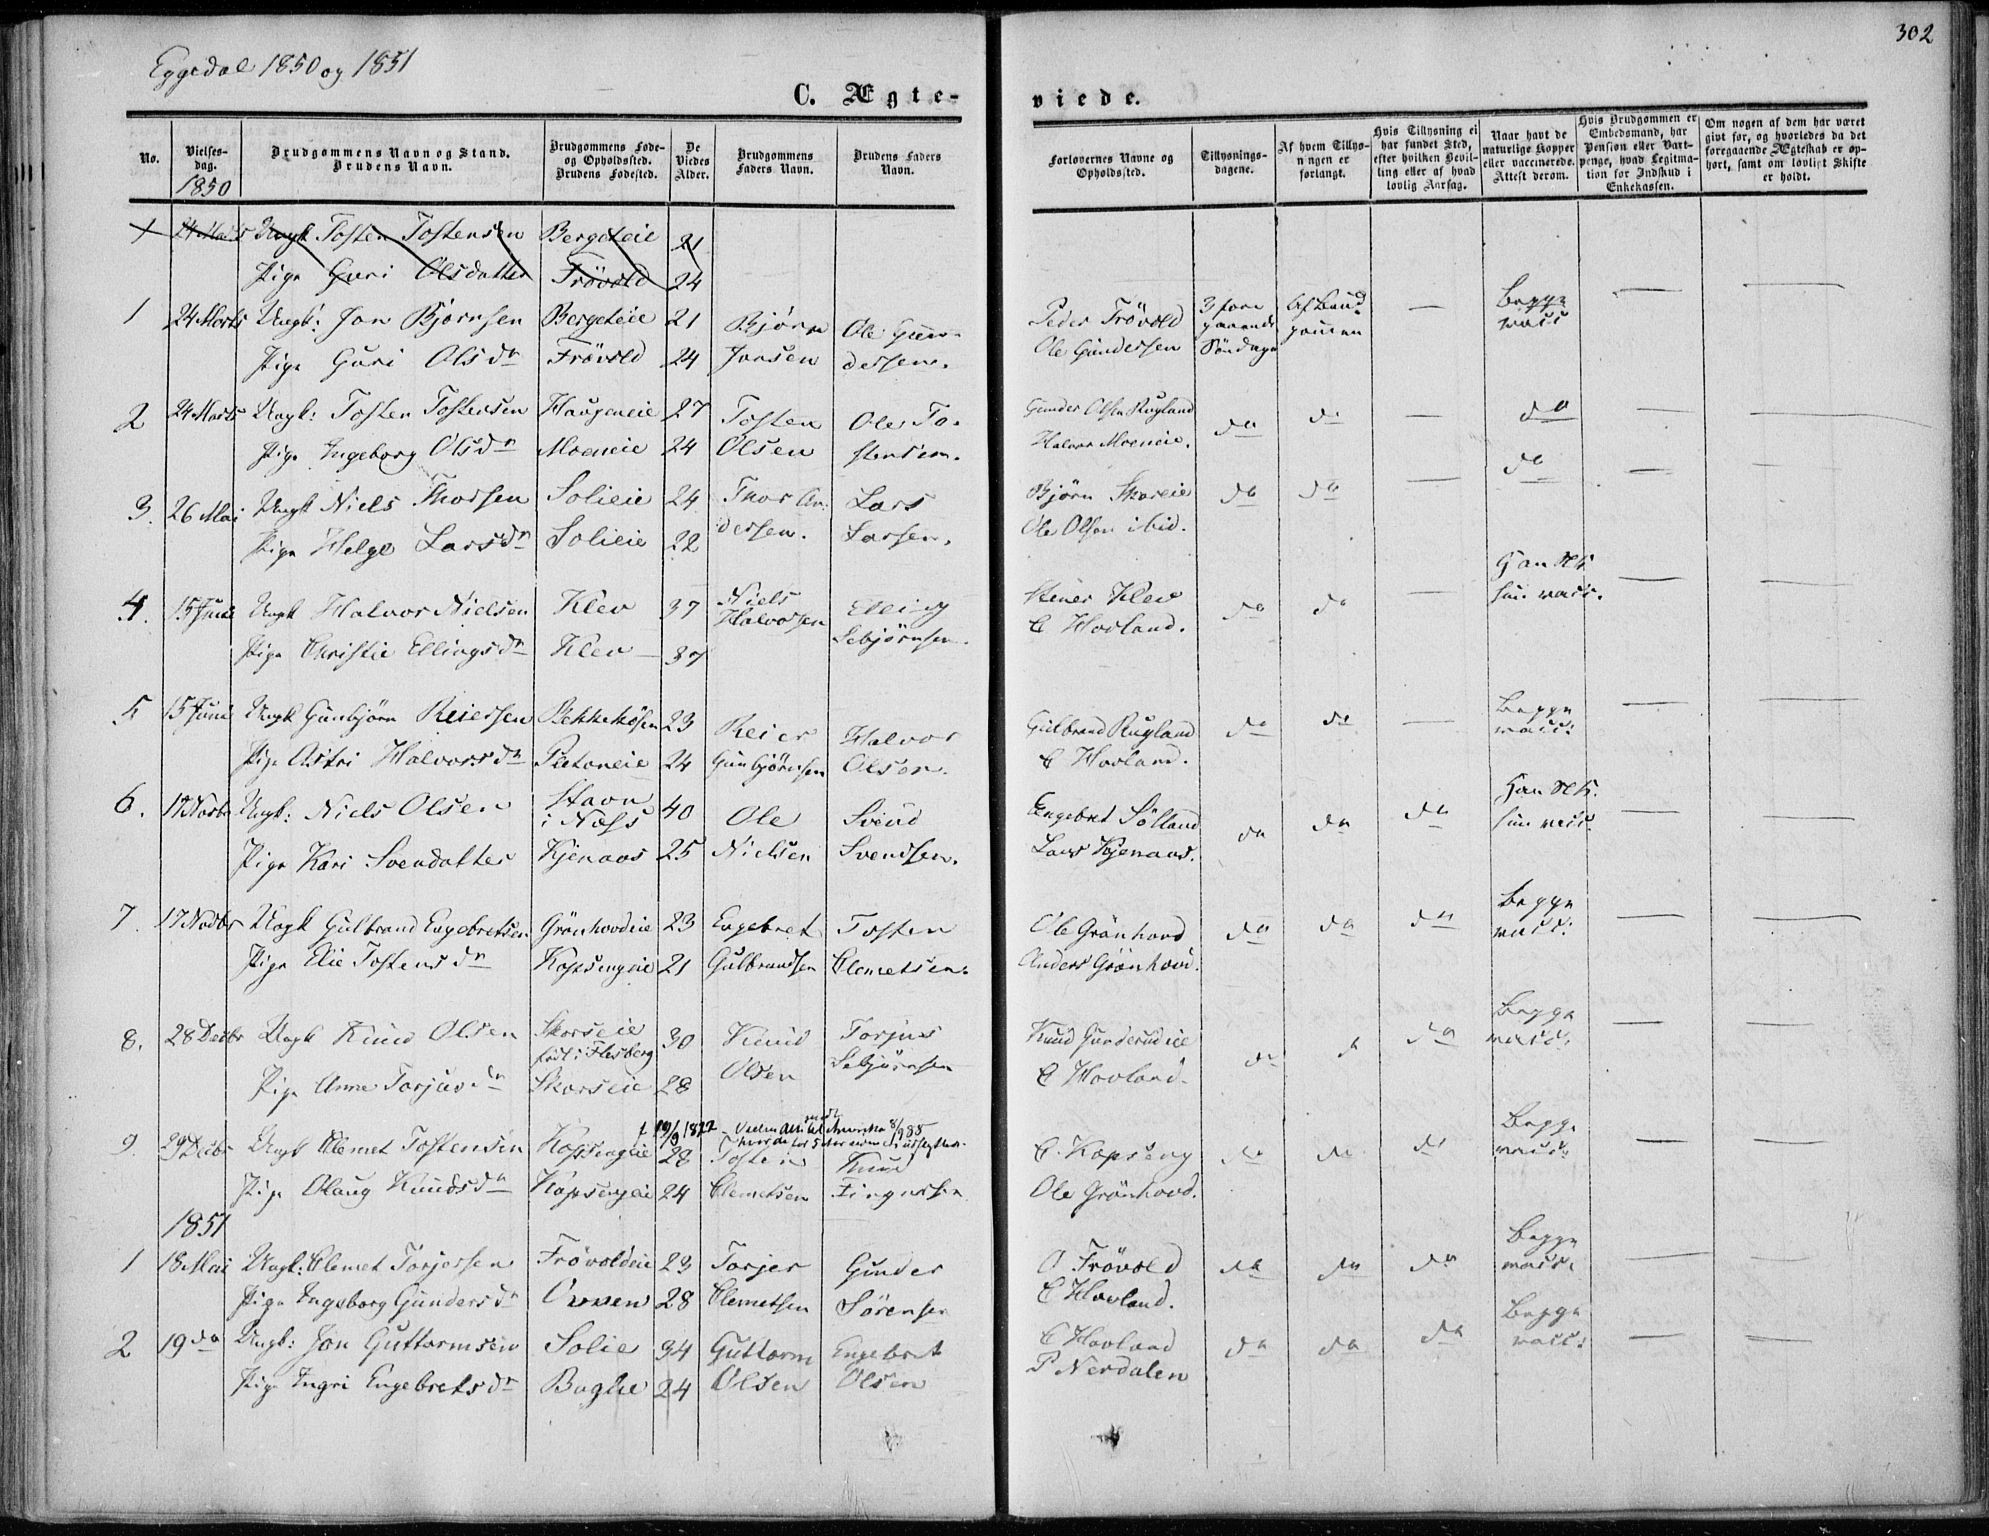 302
Eggedal 1850 og 1851
C. Ægte-
viede.
No.
Vielses-dag.
Brudgommens Navn og Stand.
Brudens Navn.
Brudgommens Føde- og Opholdssted.
Brudens Fødested.
De Viedes Alder.
Brudgommens Faders Navn.
Brudens Faders Navn.
Forlovernes Navne og Opholdssted.
Tillysnings-dagene.
Af hvem Tillysningen er forlangt.
Hvis Tillysning ei har fundet Sted, efter hvilken Bevilling eller af hvad lovlig Aarsag.
Naar havt de naturlige Kopper eller vaccinerede. Attest derom.
Hvis Brudgommen er Embedsmand, har Pension eller Vartpenge, hvad Legitimation for Indskud i Enkekassen.
Om nogen af dem har været givt før, og hvorledes da det foregaaende Ægteskab er ophørt, samt om lovligt Skifte er holdt.
1850
1 24 Marts Ungk Tosten Tostensen Bergeteie 21
Pige Guri Olsdatter Frövold 24
1 24 Marts Ungk: Jon Bjørnsen Bergeteie 21 Bjørn Ole Gun- Peder Frövold 3 fore Af Brud- — Begge — —
Pige Guri Olsdr Frövold 24 Jonsen dersen. Ole Gundersen gaaende Söndage gommen vacc
2 24 Marts Ungk: Tosten Tostensen Haugeneie 27 Tosten Ole To- Gunder Olsen Rugland do do — do — —
Pige Ingeborg Olsdr Moeneie 24 Olsen stensen. Halvor Moeneie.
3. 26 Mai Ungk Niels Thorsen Solieie 24 Thor An- Lars Bjørn Skoreie do do — do — —
Pige Helge Larsdr Solieie 22 dersen. Larsen. Ole Olsen ibid.
4. 15 Juni Ungk Halvor Nielsen Klev 37 Niels Halvorsen Elling Stener Klev do do — — —
Pige Christie Ellingsdr Klev 37 Sebjørnsen. C Hovland. hun vacc.
5 15 Juni Ungk Gunbjørn Reiersen 23 Reier Halvor Gulbrand Rugland do do — Begge — —
Pige Astri Halvorsdr 24 Gunbjörnsen Olsen. C Hovland. vacc:
6. 17 Novbr Ungk: Niels Olsen Stavn i Næss 40 Ole Svend Engebret Sölland do do do — —
Pige Kari Svendatter Kjenaas 25 Nielsen Svendsen. Lars Kjenaas. hun vacc.
7. 17 Novbr Ungk Gulbrand Engebretsen Grönhovdeie 23 Engebret Tosten Ole Grönhovd do do do Begge — —
Pige Elie Tostensdr Kopsengeie 21 Gulbrandsen Clemetsen. Anders Grönhovd. vacc:
8. 28 Decbr Ungk Knud Olsen Skorseie födt i Flesberg 30 Knud Torjus Knud Gunderudeie do do do Begge — —
Pige Anne Torjusdr Skorseie 28 Olsen Sebjörnsen C Hovland. vacc.
f. 19/9 1822
9. 29 Decbr Ungk Clemet Tostensen Kopsengeie 28 Tosten Knud C. Kopseng do do do Begge — —
Pige Olaug Knudsdr Kopsengeie 24 Clemetsen Fingarsen Ole Grönhovd. vacc:
1851
1 18 Mai Ungk: Clemet Torjersen Frövoldeie 23 Torjer Gunder O Frövold do do do Begge — —
Pige Ingeborg Gundersdr 28 Clemetsen Sörensen C Hovland. vacc.
2 19 do Ungk: Jon Guttormsen Solie 34 Guttorm Engebret C Hovland do do do Begge — —
Pige Ingri Engebretsdr Baglie 24 Olsen Olsen P Nerdalen vacc: